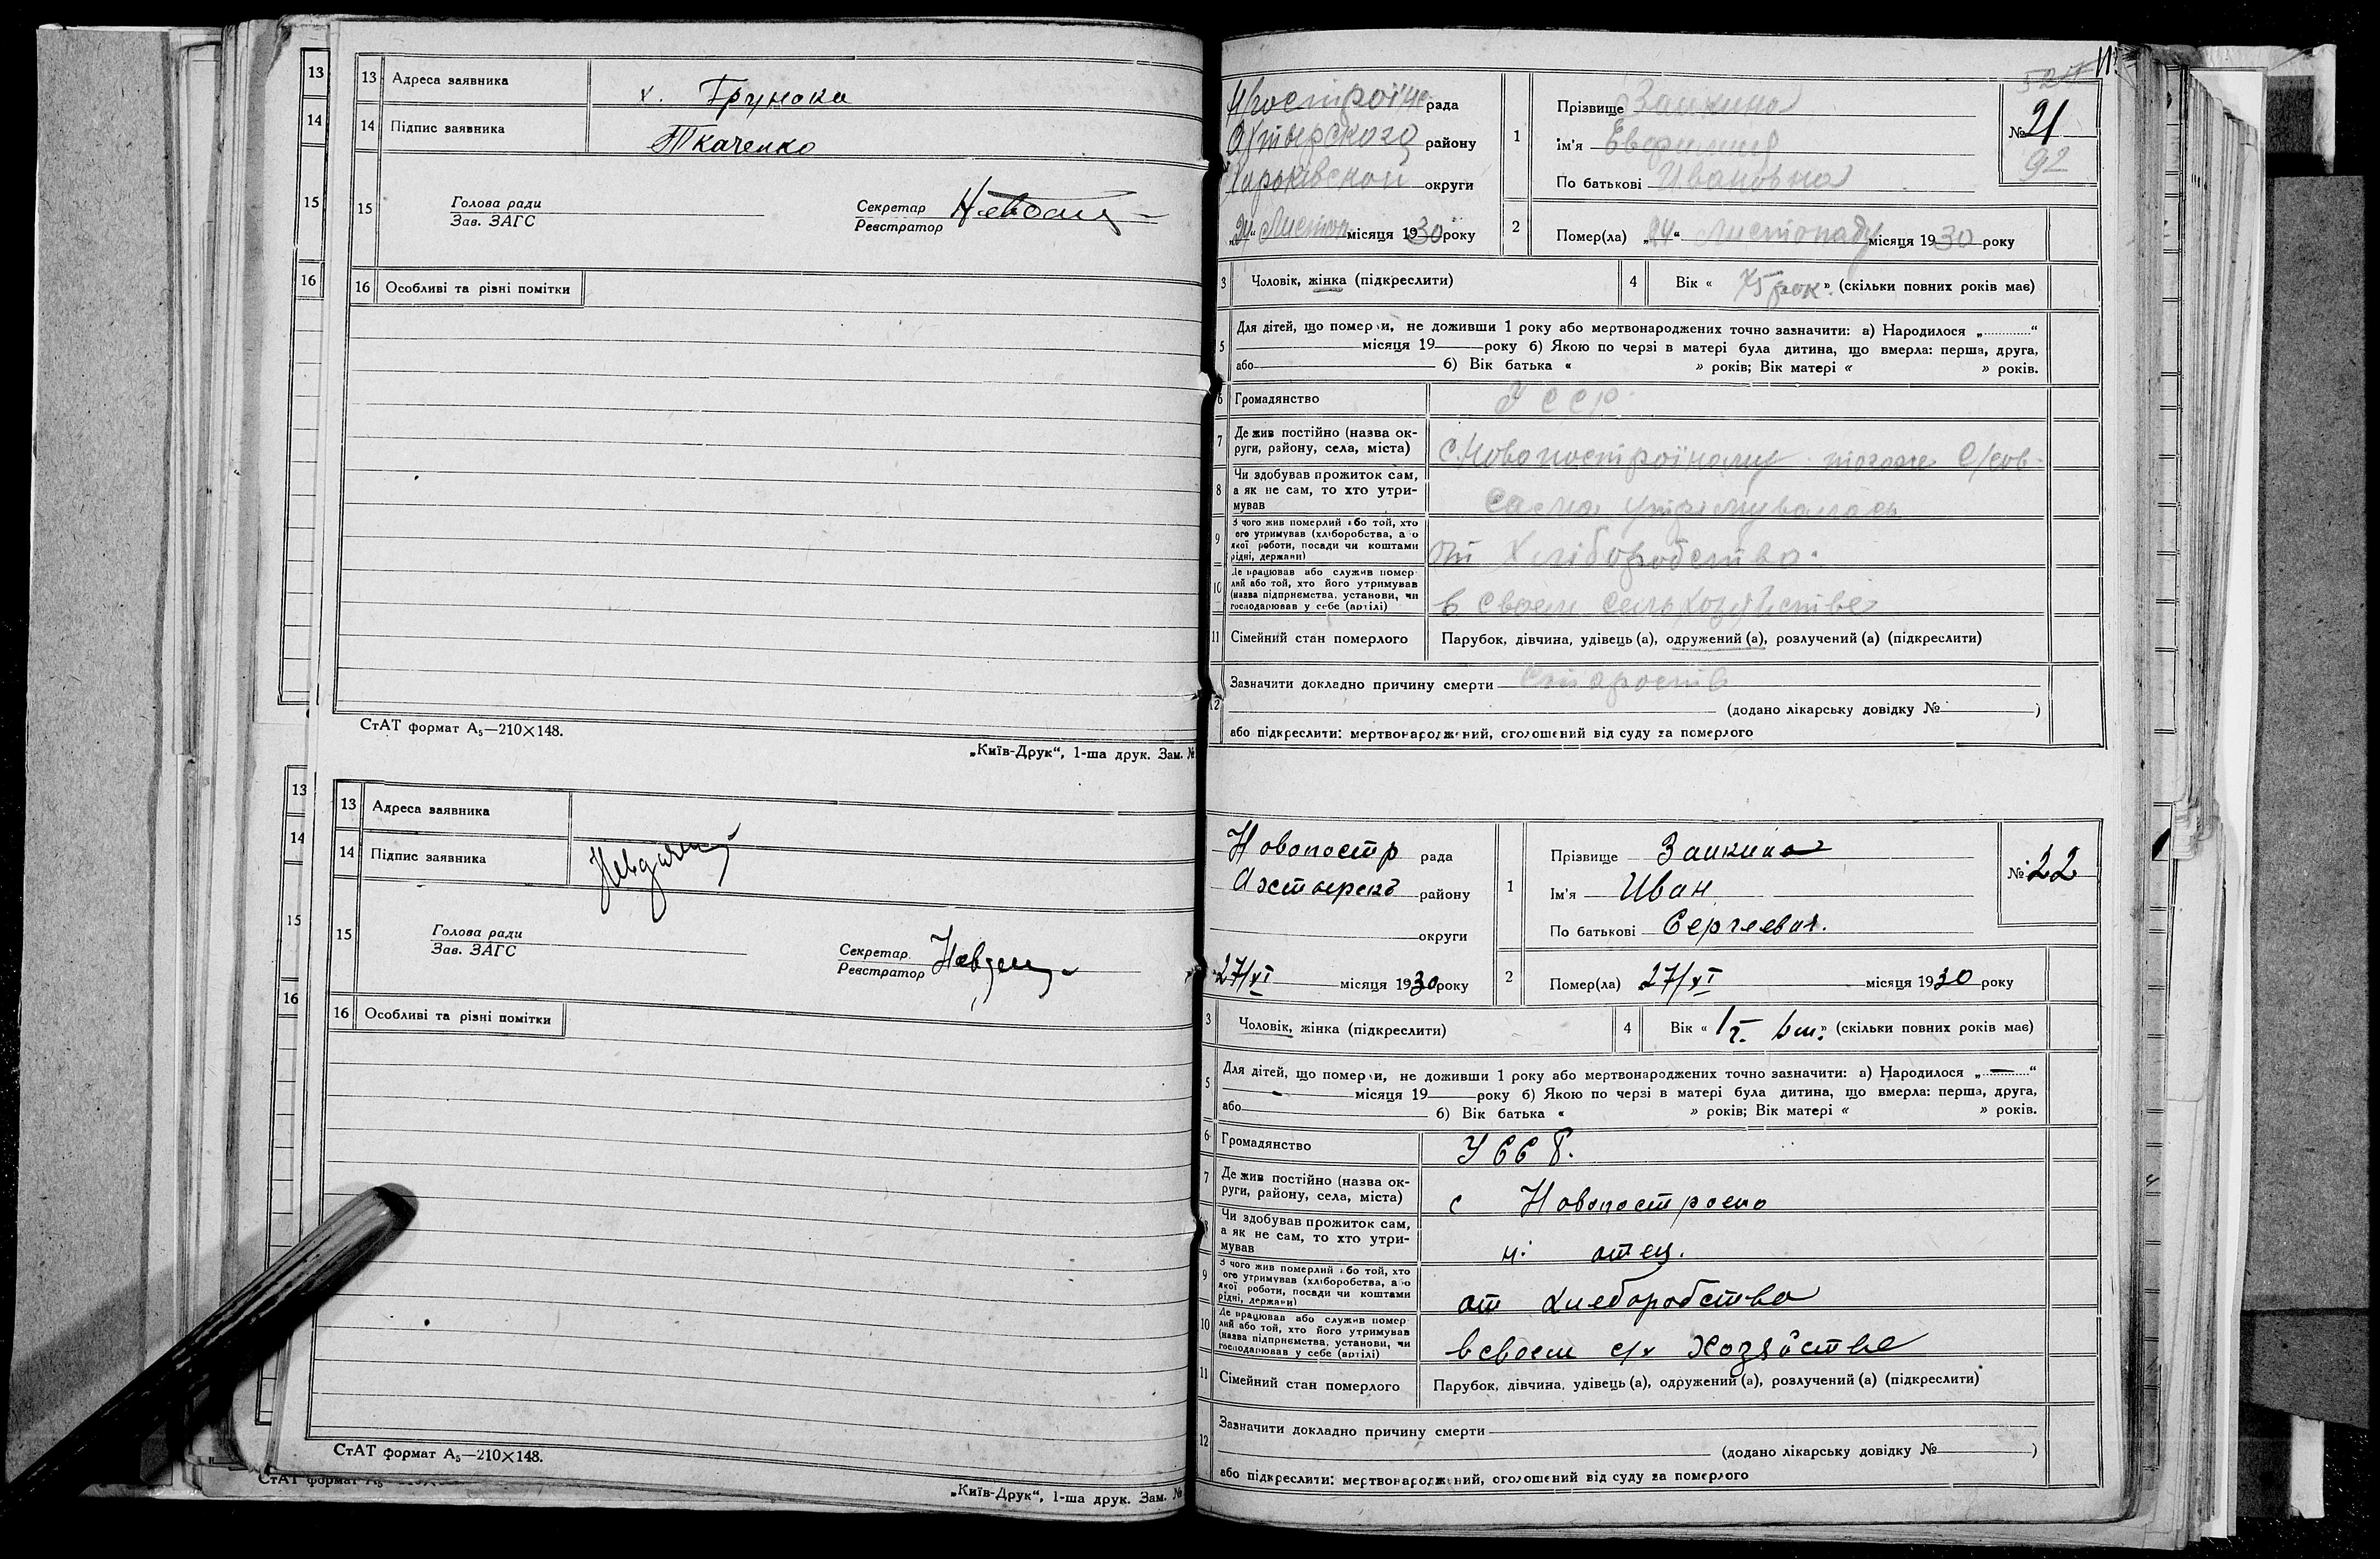 13 Адреса заявника х. Грунька
14 Підпис заявника Ткаченко
15 Голова ради
Зав. ЗАГС
Секретар
Реєстратор
16 Особливі та різні помітки
СтАТ формат А₅—210×148.
„Київ-Друк“, 1-ша друк. Зам. №
13 Адреса заявника
14 Підпис заявника
15 Голова ради
Зав. ЗАГС
Секретар
Реєстратор
16 Особливі та різні помітки
СтАТ формат А₅—210×148.
„Київ-Друк“, 1-ша друк. Зам. №
рада
району
Харьківской округи
„24“ Листоп місяця 1930 року
1 Прізвище Заикина
Ім'я Евфимия
По батькові Ивановна
№ 21
92
2 Помер(ла) „24“ Листопаду місяця 1930 року
3 Чоловік, жінка (підкреслити)
4 Вік « 75 рок » (скільки повних років має)
5 Для дітей, що померли, не доживши 1 року або мертвонароджених точно зазначити: а) Народилося „ “
місяця 19 року б) Якою по черзі в матері була дитина, що вмерла: перша, друга,
або б) Вік батька « » років; Вік матері « » років.
6 Громадянство УССР
7 Де жив постійно (назва ок-
руги, району, села, міста) с. тогоже с/сов.
8 Чи здобував прожиток сам,
а як не сам, то хто утри-
мував сама утримувалась
9 З чого жив померлий або той, хто
ого утримував (хліборобства, або
якої роботи, посади чи коштами
рідні, держави) от хліборобства.
10 Де працював або служив помер
лий або той, хто його утримував
(назва підприємства, установи, чи
господарював у себе (артілі) в своем сельхозяйстве
11 Сімейний стан померлого Парубок, дівчина, удівець (а), одружений (а), розлучений (а) (підкреслити)
12 Зазначити докладно причину смерти старость
(додано лікарську довідку № )
або підкреслити: мертвонароджений, оголошений від суду за померлого
Новопостр рада
Ахтырскъ району
округи
27/XI місяця 1930 року
1 Прізвище Заикина
Ім'я Иван
По батькові Сергеевич.
№ 22
2 Помер(ла) 27/XI місяця 1930 року
3 Чоловік, жінка (підкреслити)
4 Вік « 1 г. 6 м. » (скільки повних років має)
5 Для дітей, що померли, не доживши 1 року або мертвонароджених точно зазначити: а) Народилося „—“
місяця 19 року б) Якою по черзі в матері була дитина, що вмерла: перша, друга,
або б) Вік батька « » років; Вік матері « » років.
6 Громадянство УССР.
7 Де жив постійно (назва ок-
руги, району, села, міста) с Новопостроено
8 Чи здобував прожиток сам,
а як не сам, то хто утри-
мував н. отец.
9 З чого жив померлий або той, хто
ого утримував (хліборобства, або
якої роботи, посади чи коштами
рідні, держави) от хлеборобства
10 Де працював або служив помер
лий або той, хто його утримував
(назва підприємства, установи, чи
господарював у себе (артілі) в своем с/х хозяйстве
11 Сімейний стан померлого Парубок, дівчина, удівець (а), одружений (а), розлучений (а) (підкреслити)
12 Зазначити докладно причину смерти
(додано лікарську довідку № )
або підкреслити: мертвонароджений, оголошений від суду за померлого